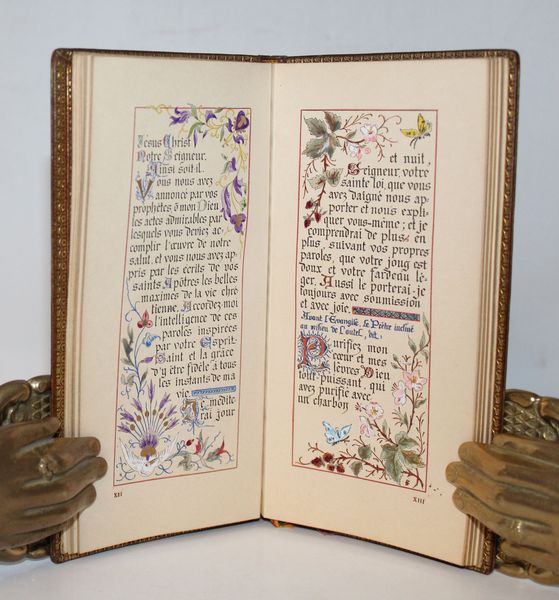 Jésus Christ
Notre Seigneur.
Ainsi soit-il.
Vous nous avez
annoncé par vos
prophètes ô mon Dieu
les actes admirables par
lesquels vous deviez ac-
complir l'œuvre de notre
salut, et vous nous avez ap-
pris par les écrits de vos
saints Apôtres les belles
maximes de la vie chré
tienne. Accordez-moi
l'intelligence de ces
paroles inspirées
par votre Esprit-
Saint et la grâce
d'y être fidèle à tous
les instants de ma
vie.
Je médite-
rai jour
XII
et nuit,
Seigneur, votre
sainte loi, que vous
avez daigné nous ap-
porter et nous expli-
quer vous-même; et je
comprendrai de plus en
plus, suivant vos propres
paroles, que votre joug est
doux et votre fardeau lé-
ger. Aussi le porterai-je
toujours avec soumission
et avec joie.
Avant l'Evangile, le Prêtre incliné
au milieu de l'autel, dit:
Purifiez mon
cœur et mes
lèvres Dieu
tout-puissant, qui
avez purifié avec
un charbon
XIII